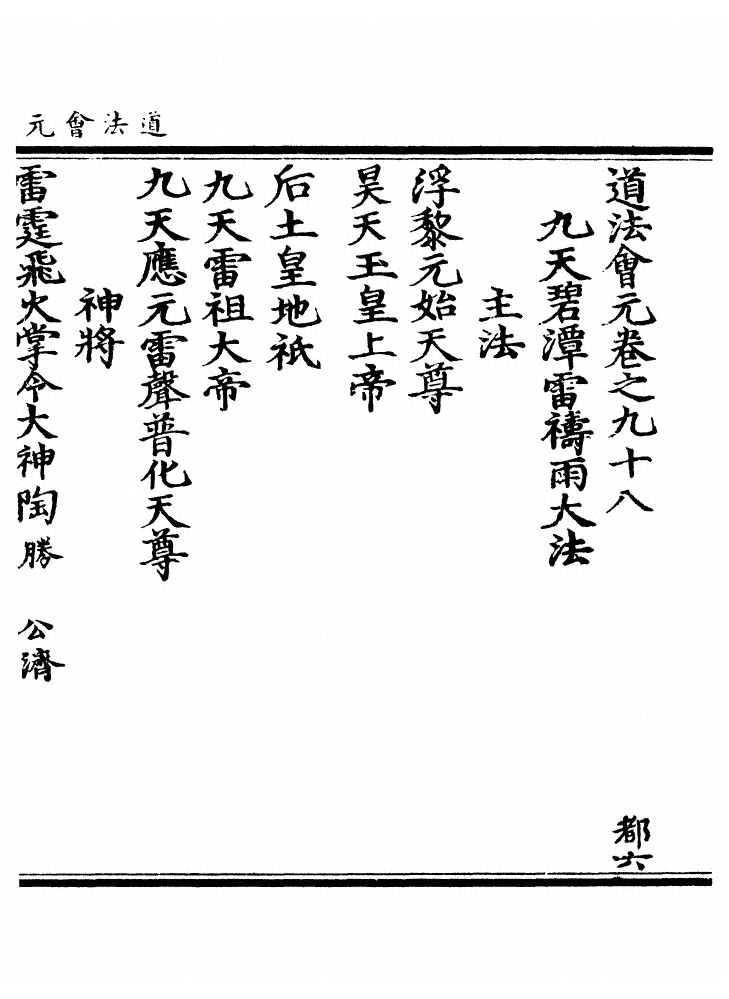 道法會元
道法會元卷之九十八
都六
九天碧潭雷禱雨大法
主法
浮黎元始天尊
昊天玉皇上帝
后土皇地祇
九天雷祖大帝
九天應元雷聲普化天尊
神將
雷霆飛火掌令大神陶勝 公濟